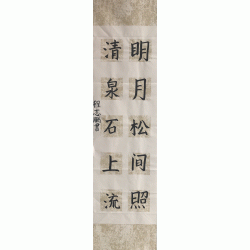 明月松间照
清泉石上流
程志颐书